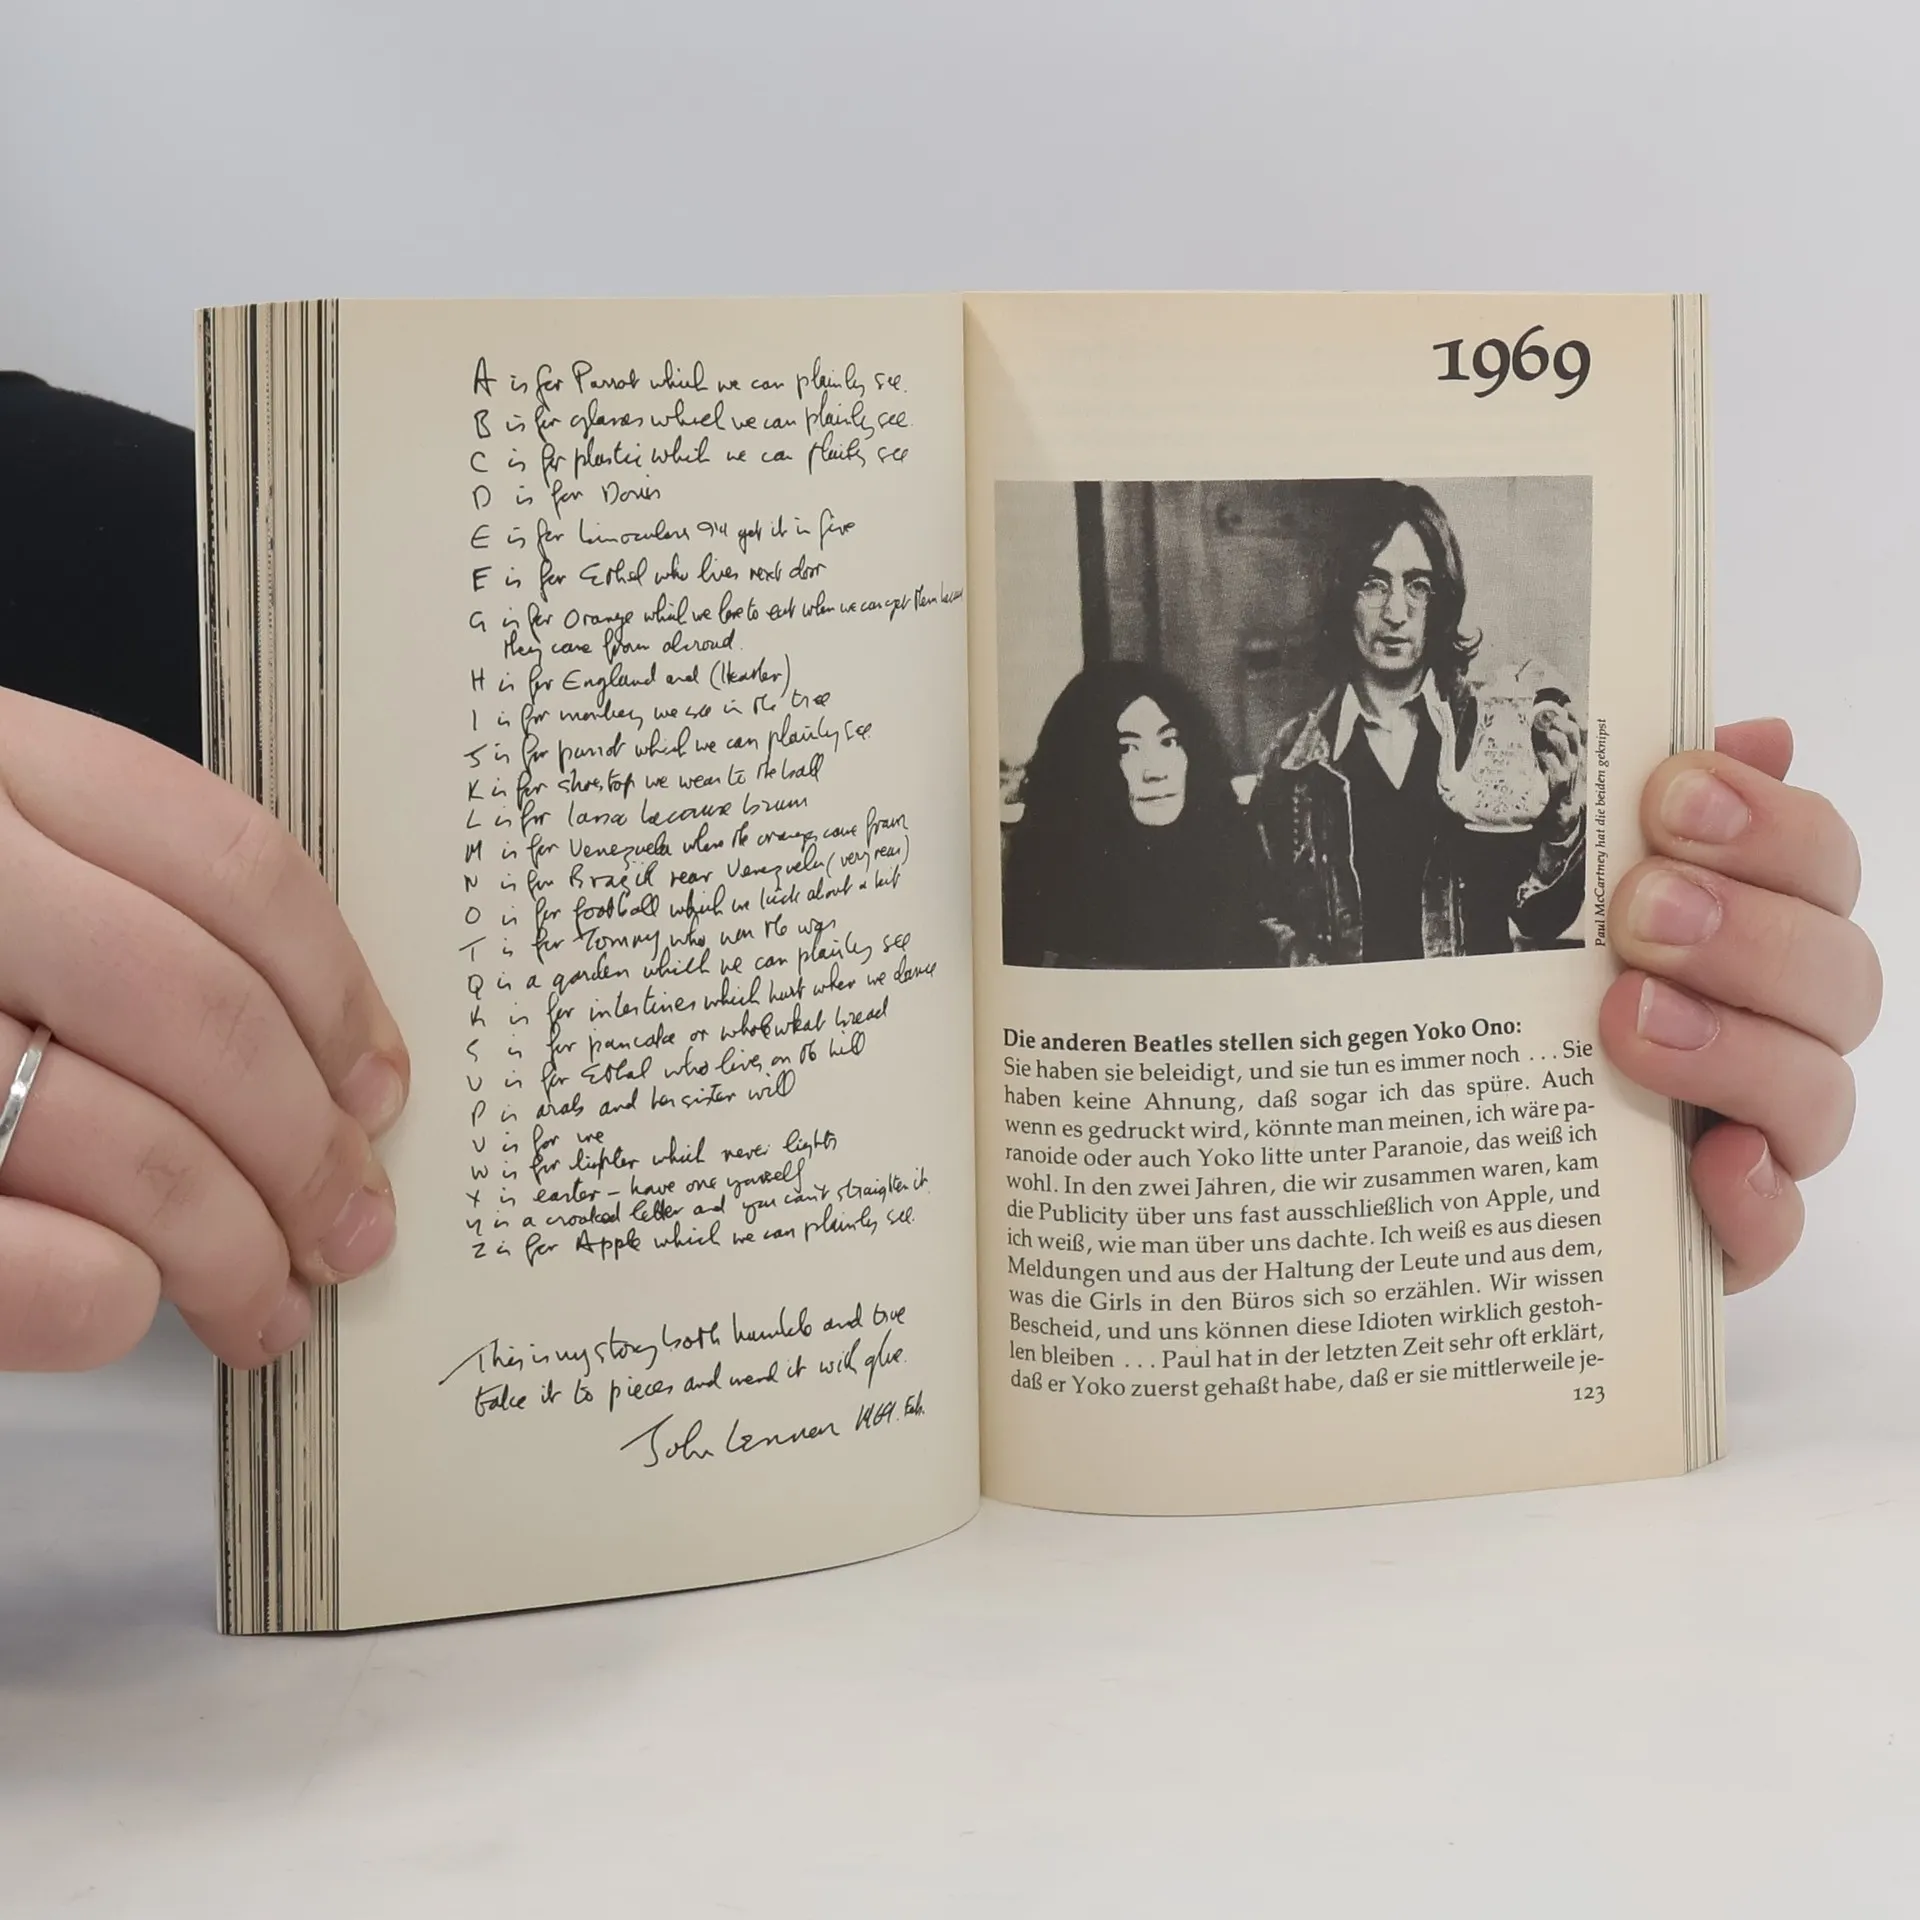 A is for Parrot which we can plainly see.
B is for glasses which we can plainly see.
C is for plastic which we can plainly see
D is for Doris
E is for binoculars I'll get it in five
F is for Ethel who lives next door
G is for Orange which we love to eat when we can get them because
they come from abroad.
H is for England and (Heather)
I is for monkey we see in the tree
J is for parrot which we can plainly see.
K is for shoestop we wear to the ball
L is for because brown
M is for Venezuela where the oranges come from
N is for Brazil near Venezuela (very near)
O is for football which we kick about a bit
T is for Tommy who won the war
Q is a garden which we can plainly see
R is for intestines which hurt when we dance
S is for pancake or whole wheat bread
U is for Ethel who lives on the hill
P is arab and her sister will
V is for me
W is for lighter which never lights
X is easter – have one yourself
Y is a crooked letter and you can't straighten it.
Z is for Apple which we can plainly see.
This is my story both humble and true
take it to pieces and mend it with glue.
John Lennon 1969. Feb.
1969
Paul McCartney hat die beiden geknipst
Die anderen Beatles stellen sich gegen Yoko Ono:
Sie haben sie beleidigt, und sie tun es immer noch . . . Sie
haben keine Ahnung, daß sogar ich das spüre. Auch
wenn es gedruckt wird, könnte man meinen, ich wäre pa-
ranoide oder auch Yoko litte unter Paranoie, das weiß ich
wohl. In den zwei Jahren, die wir zusammen waren, kam
die Publicity über uns fast ausschließlich von Apple, und
ich weiß, wie man über uns dachte. Ich weiß es aus diesen
Meldungen und aus der Haltung der Leute und aus dem,
was die Girls in den Büros sich so erzählen. Wir wissen
Bescheid, und uns können diese Idioten wirklich gestoh-
len bleiben . . . Paul hat in der letzten Zeit sehr oft erklärt,
daß er Yoko zuerst gehaßt habe, daß er sie mittlerweile je-
123